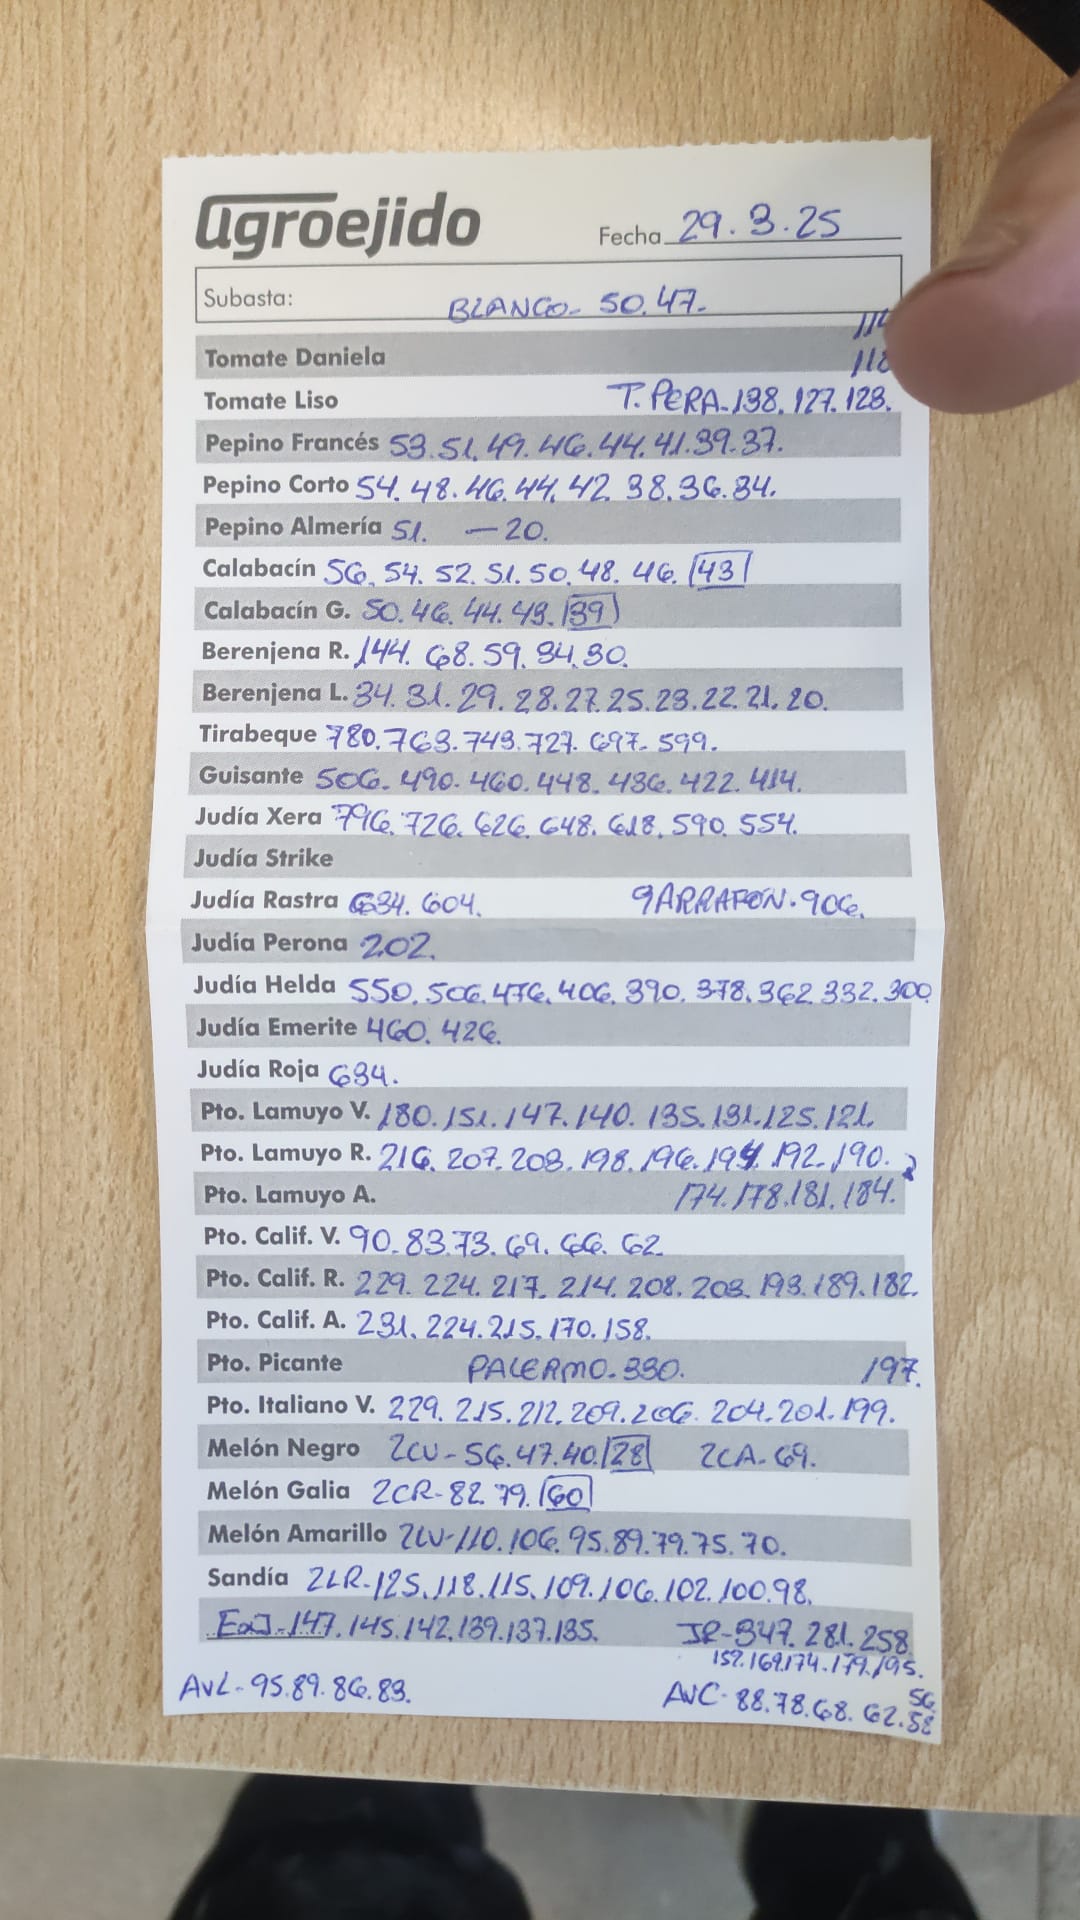 agroejido
Fecha 29.3.25
Subasta: BLANCO- 50.47.
Tomate Daniela 118
Tomate Liso T. PERA-138.127.123.
Pepino Francés 53.51.49.46.44.41.39.37.
Pepino Corto 54.48.46.44.42.38.36.34.
Pepino Almería 51. —20.
Calabacín 56.54.52.51.50.48.46.43
Calabacín G. 50.46.44.43.39
Berenjena R. 144.68.59.34.30.
Berenjena L. 34.31.29.28.27.25.23.22.21.20.
Tirabeque 780.763.743.727.697.599.
Guisante 506.490.460.448.436.422.414.
Judía Xera 796.726.626.648.618.590.554.
Judía Strike
Judía Rastra 634.604. GARRAFON.906.
Judía Perona 202.
Judía Helda 550.506.476.406.390.378.362.332.300
Judía Emerite 460.426.
Judía Roja 634.
Pto. Lamuyo V. 180.151.147.140.135.131.125.121.
Pto. Lamuyo R. 216.207.203.198.196.194.192.190.
Pto. Lamuyo A. 174.178.181.184.
Pto. Calif. V. 90.83.73.69.66.62.
Pto. Calif. R. 229.224.217.214.208.203.193.189.182.
Pto. Calif. A. 231.224.215.170.158.
Pto. Picante PALERMO-330. 197.
Pto. Italiano V. 229.215.212.209.206.204.201.199.
Melón Negro 2CV-56.47.40.28 2CA-69.
Melón Galia 2CR-82.79.60
Melón Amarillo 2LV-110.106.95.89.79.75.70.
Sandía 2LR-125.118.115.109.106.102.100.98.
ExJ-147.145.142.139.137.135. JR-347.281.258
169.174.179.195.
AVL-95.89.86.83. AVC-88.78.68.62.58
56